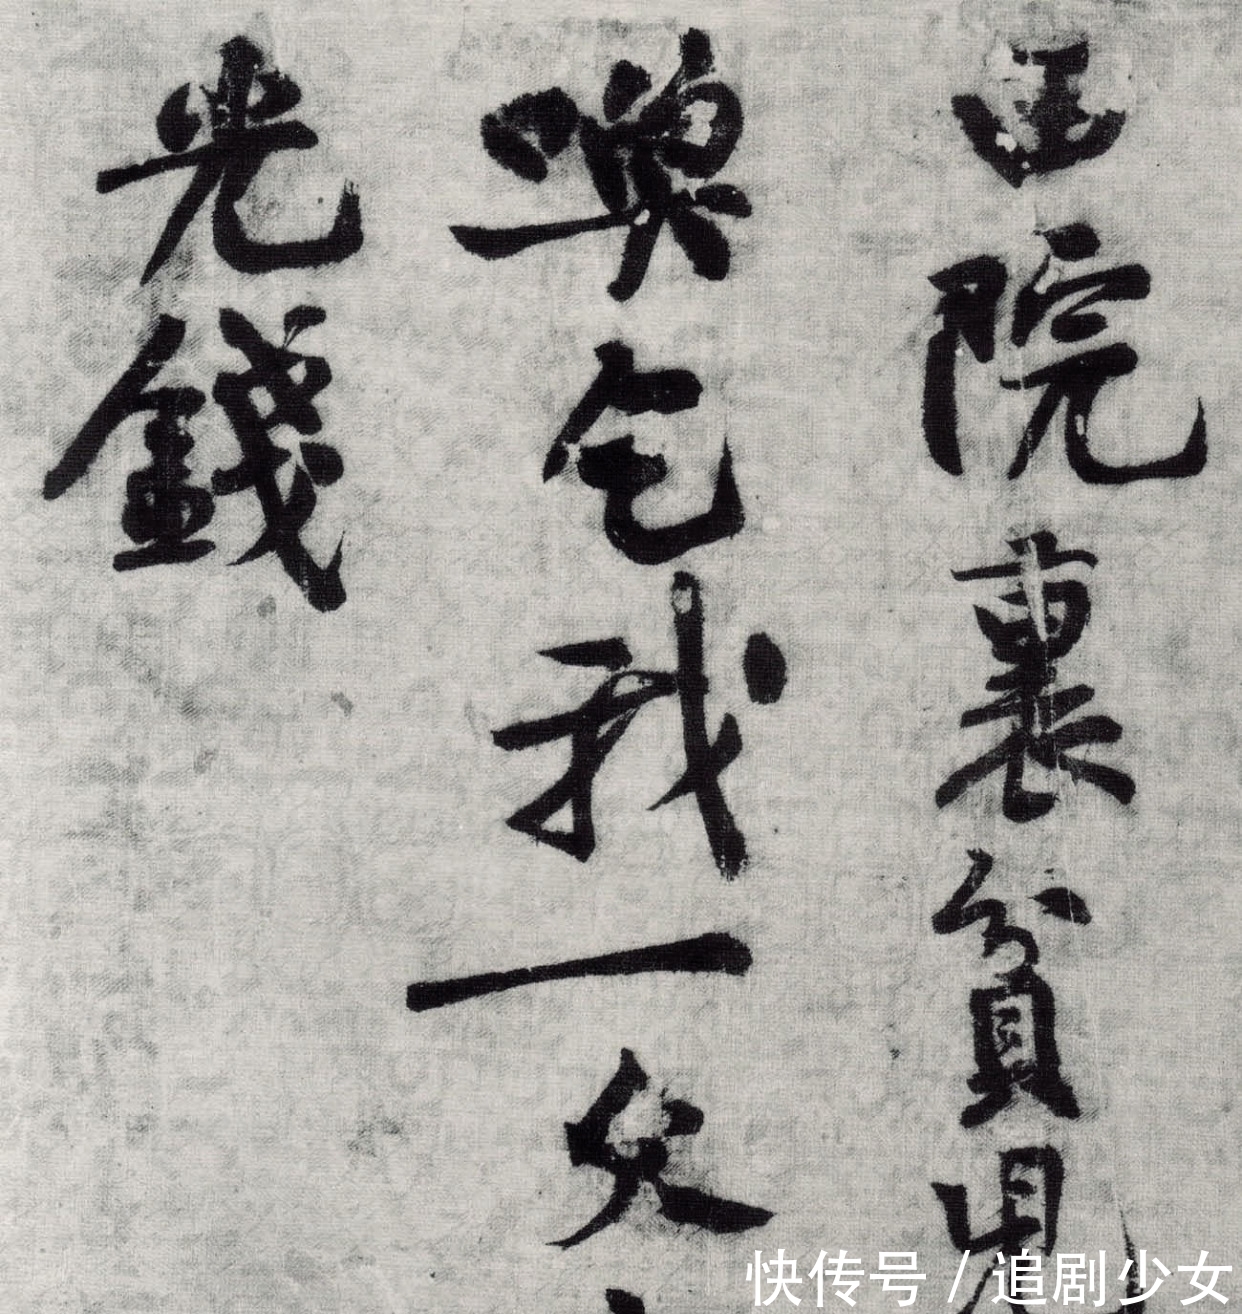 院裏貧兒
喚乞我一文
光錢
快传号 / 追剧少女